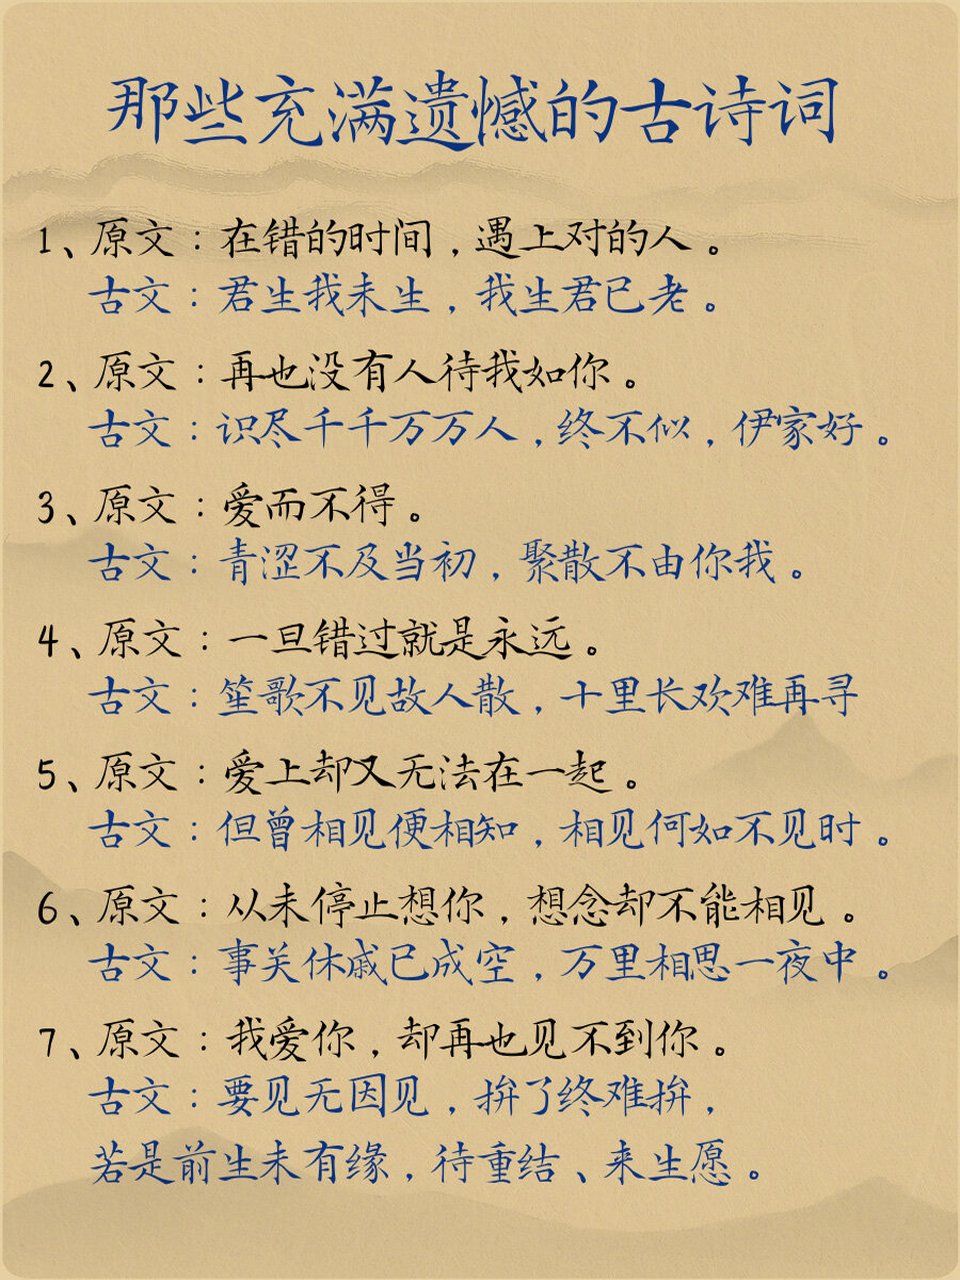 那些充满遗憾的古诗词
1、原文：在错的时间，遇上对的人。
古文：君生我未生，我生君已老。
2、原文：再也没有人待我如你。
古文：识尽千千万万人，终不似，伊家好。
3、原文：爱而不得。
古文：青涩不及当初，聚散不由你我。
4、原文：一旦错过就是永远。
古文：笙歌不见故人散，十里长欢难再寻
5、原文：爱上却又无法在一起。
古文：但曾相见便相知，相见何如不见时。
6、原文：从未停止想你，想念却不能相见。
古文：事关休戚已成空，万里相思一夜中。
7、原文：我爱你，却再也见不到你。
古文：要见无因见，拚了终难拚，
若是前生未有缘，待重结、来生愿。